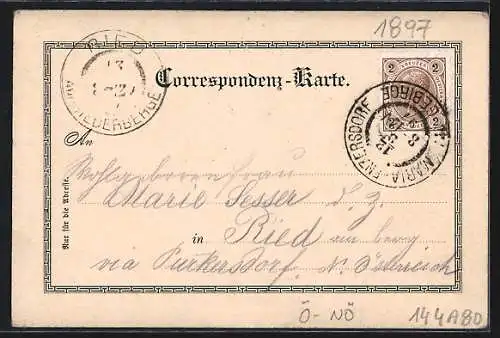 1897
RIED
AM RIEDERBERGE
Correspondenz-Karte.
2 2
MARIA ENZERSDORF
GEBIRGE
An
Wohlgeborenen Frau
Marie Sesser
in Ried am berg
via Purkersdorf, N. Österreich
Nur für die Adresse.
Ö- NÖ
144A80